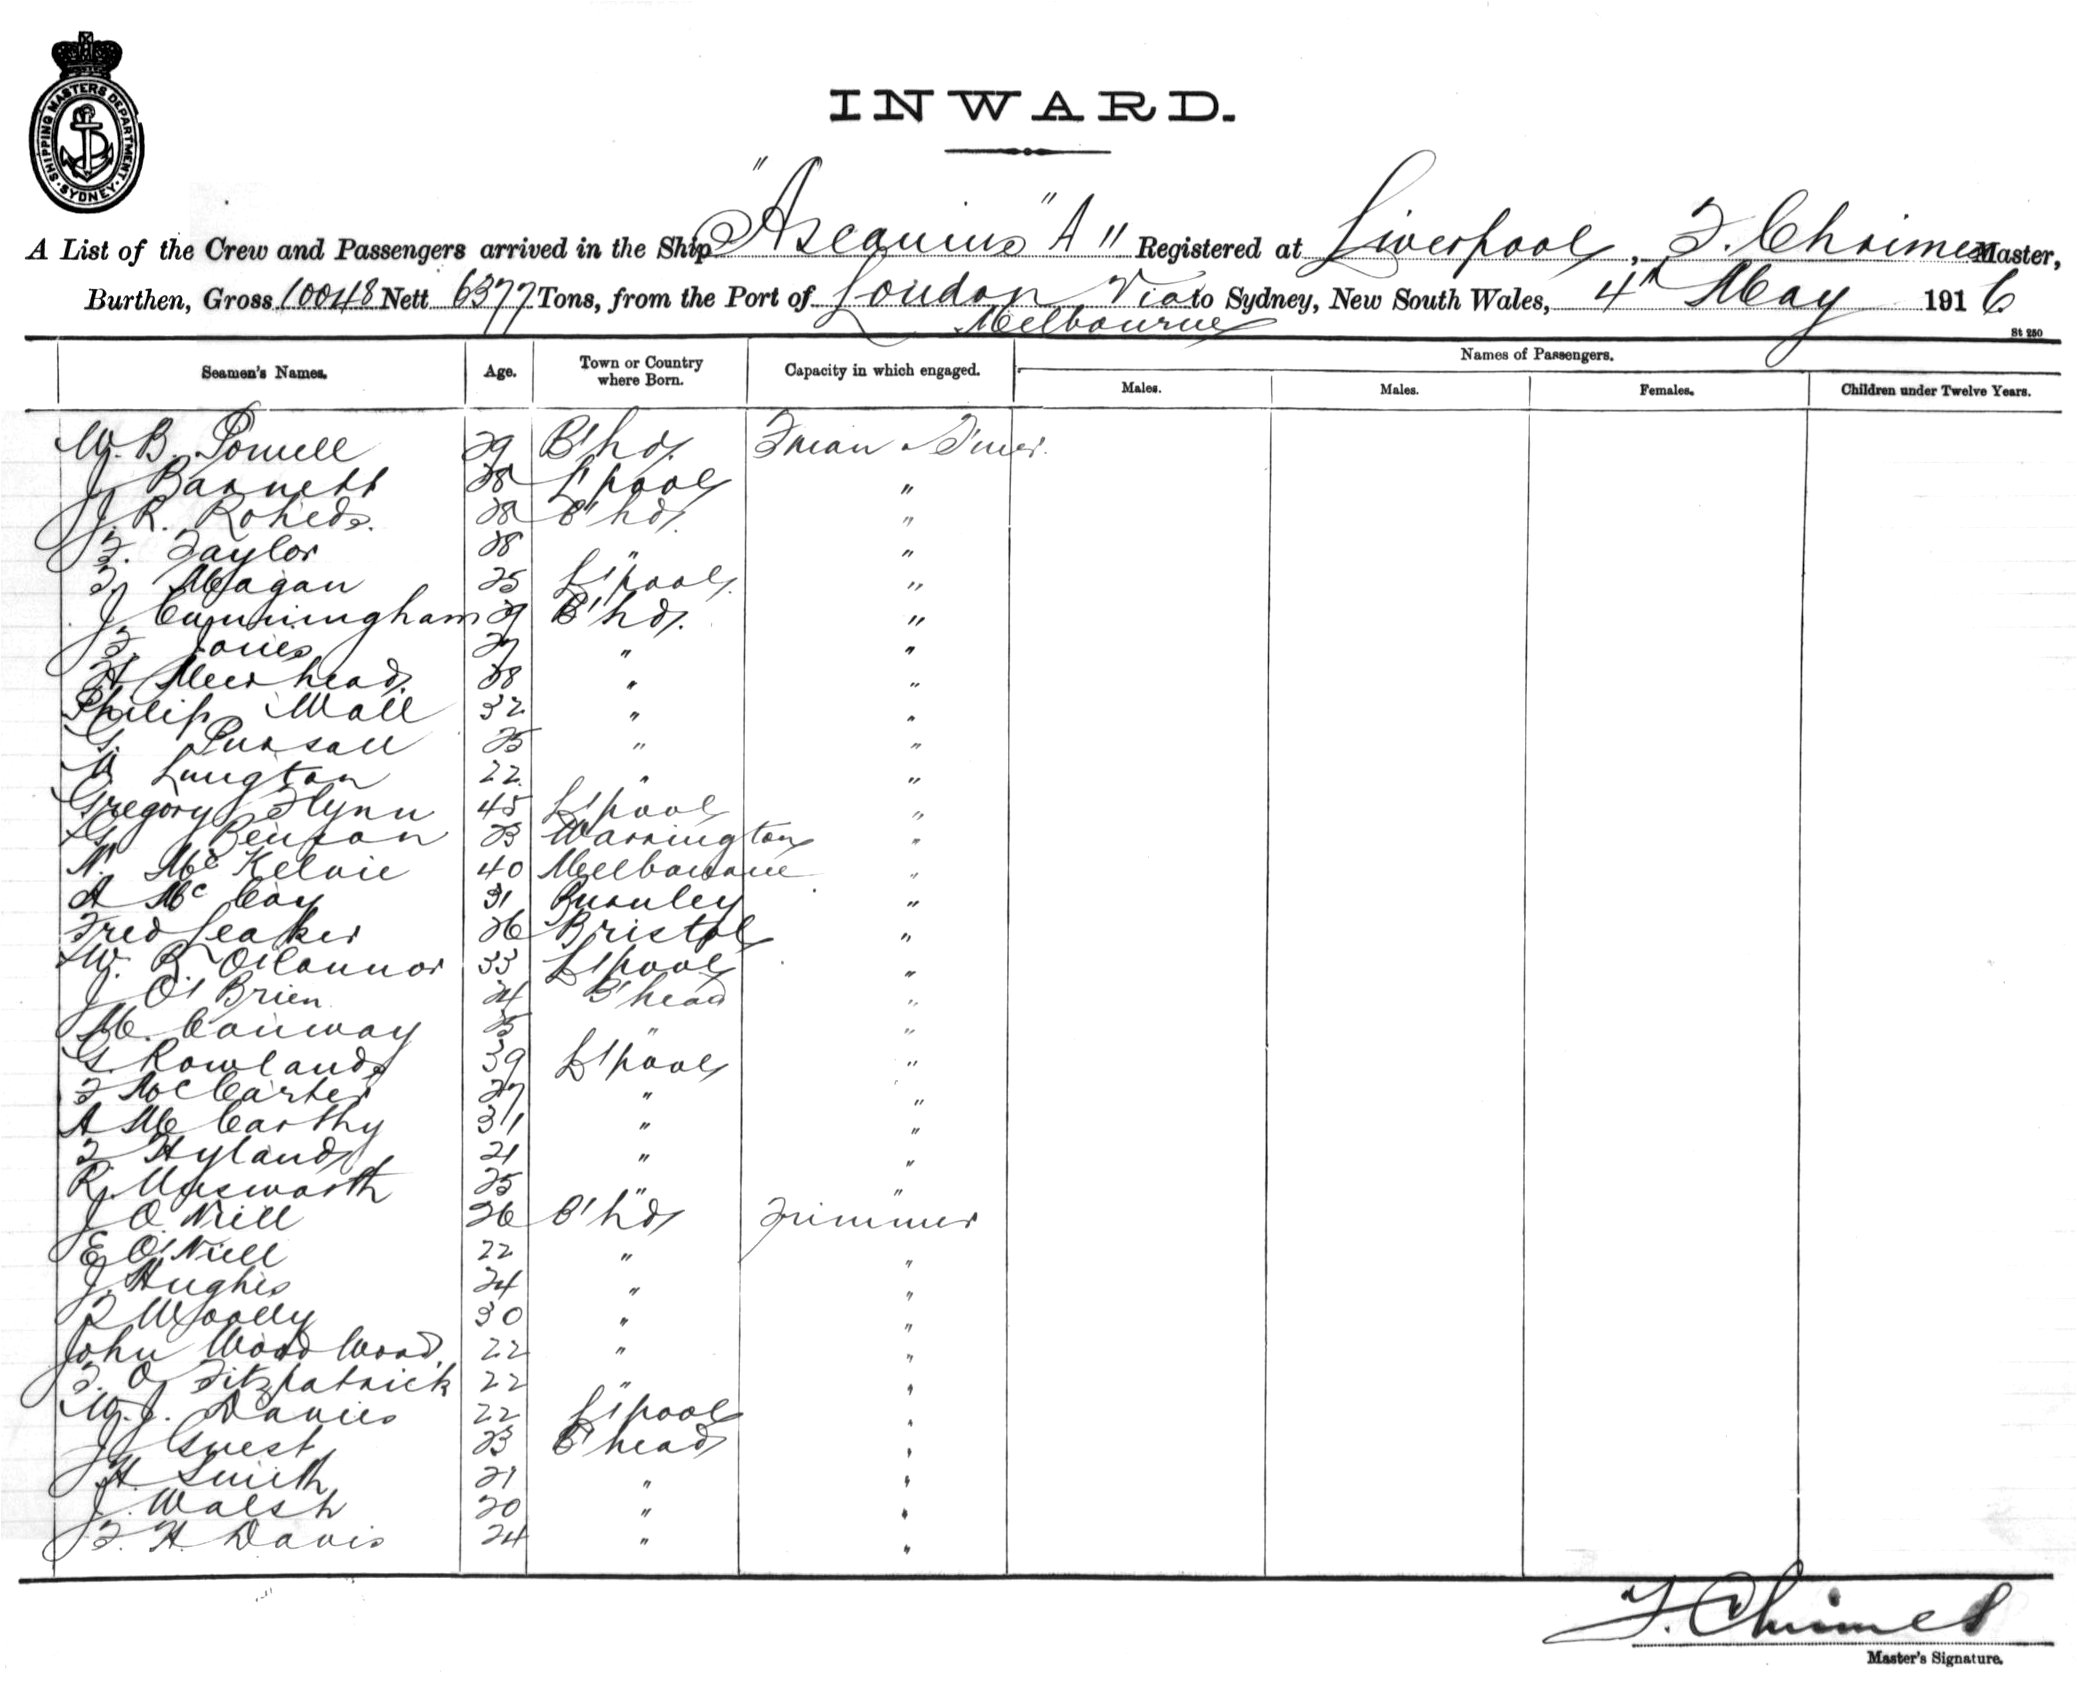 SHIPPING MASTERS DEPARTMENT · SYDNEY ·
INWARD.
A List of the Crew and Passengers arrived in the Ship "Ascanius" "A" Registered at Liverpool, F. Chrimes Master,
Burthen, Gross 10048 Nett 6377 Tons, from the Port of London Via to Sydney, New South Wales, 4th May 1916
Melbourne
St 250
Seamen's Names. Age. Town or Country where Born. Capacity in which engaged. Names of Passengers.
Males. Males. Females. Children under Twelve Years.
W. B. Powell 29 B'hd. F'man & T'mer.
J. Barnett 28 L'pool "
J. R. 28 B'hd. "
F. Taylor 28 " "
T. Magan 25 L'pool. "
J. Cunningham 29 B'hd. "
F. Jones 27 " "
H. Muirhead. 28 " "
Philip Wall 32 " "
G. Pursall 25 " "
W Langton 22. " "
Gregory Flynn 45 L'pool "
G. 23 Warrington "
N. McKelvie 40 Melbourne "
A McCoy 31 Burnley "
Fred Leaker 26 Bristol "
W. B. O'Connor 33 L'pool "
J. O'Brien 24 B'head "
M. Conway 25 " "
G. Rowlands 39 L'pool "
F McCarter 27 " "
A McCarthy 31 " "
T Hyland 21 " "
R. Unsworth 25 " "
J O. Neill 26 B'hd Trimmer
E O'Neill 22 " "
J. Hughes 24 " "
T Woolly 30 " "
John Wood Wood. 22 " "
F. O. Fitzpatrick 22 " "
W. J. Davies 22 L'pool "
J. Guest 23 B'head "
H. Smith 21 " "
J. Walsh 20 " "
F. H. Davis 24 " "
F. Chrimes
Master's Signature.